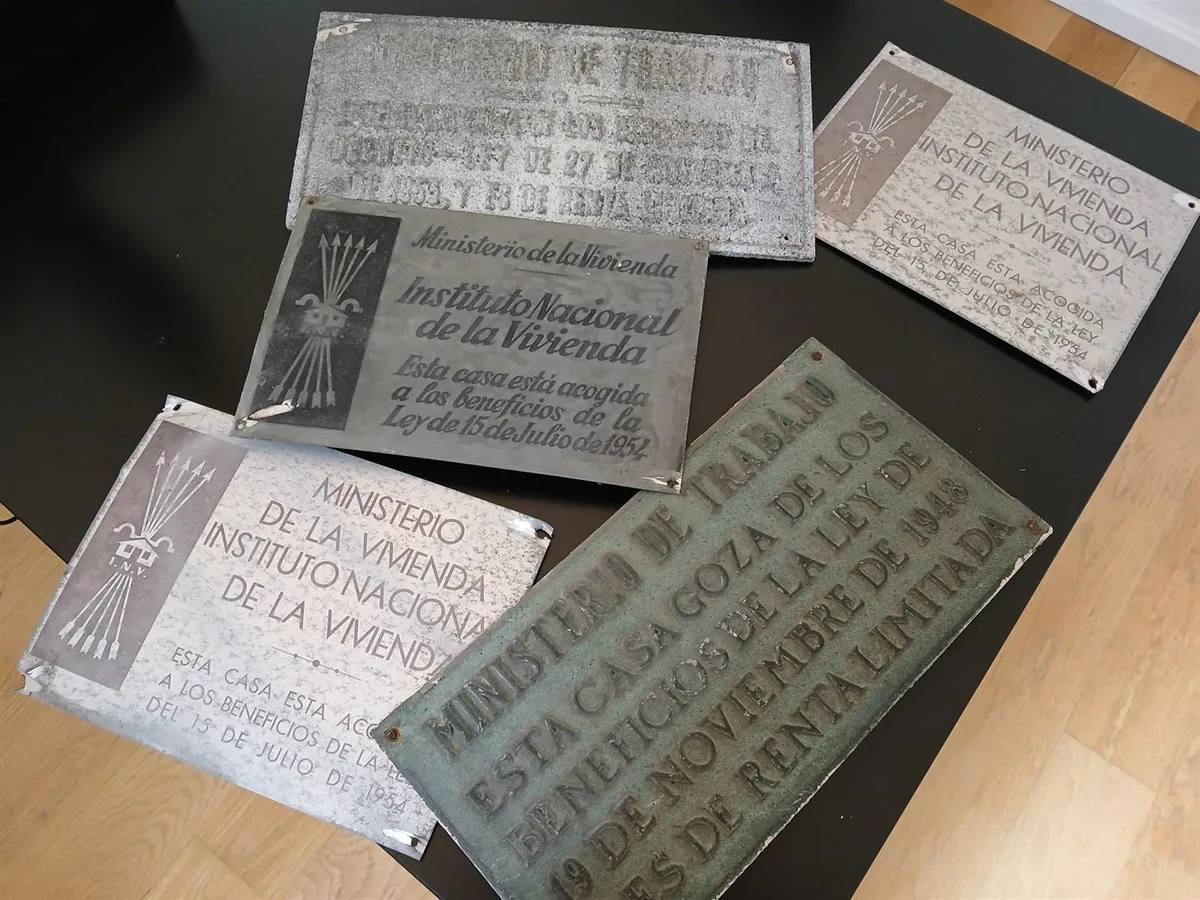 MINISTERIO DE TRABAJO
DE 27 DE
MINISTERIO
DE LA VIVIENDA
INSTITUTO NACIONAL
DE LA VIVIENDA
ESTA CASA ESTA ACOGIDA
A LOS BENEFICIOS DE LA LEY
DEL 15 DE JULIO DE 1954
Ministerio de la Vivienda
Instituto Nacional
de la Vivienda
Esta casa está acogida
a los beneficios de la
Ley de 15 de Julio de 1954
I.N.V.
MINISTERIO
DE LA VIVIENDA
INSTITUTO NACIONA
DE LA VIVIENDA
ESTA CASA ESTA ACO
A LOS BENEFICIOS DE LA LE
DEL 15 DE JULIO DE 1954
MINISTERIO DE TRABAJO
ESTA CASA GOZA DE LOS
BENEFICIOS DE LA LEY DE
19 DE NOVIEMBRE DE 1948
ES DE RENTA LIMITADA